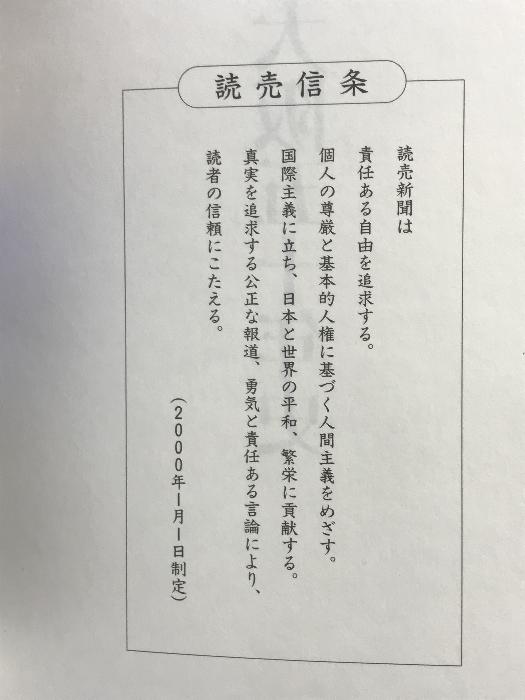 読売信条
読売新聞は
責任ある自由を追求する。
個人の尊厳と基本的人権に基づく人間主義をめざす。
国際主義に立ち、日本と世界の平和、繁栄に貢献する。
真実を追求する公正な報道、勇気と責任ある言論により、
読者の信頼にこたえる。
(2000年1月1日制定)